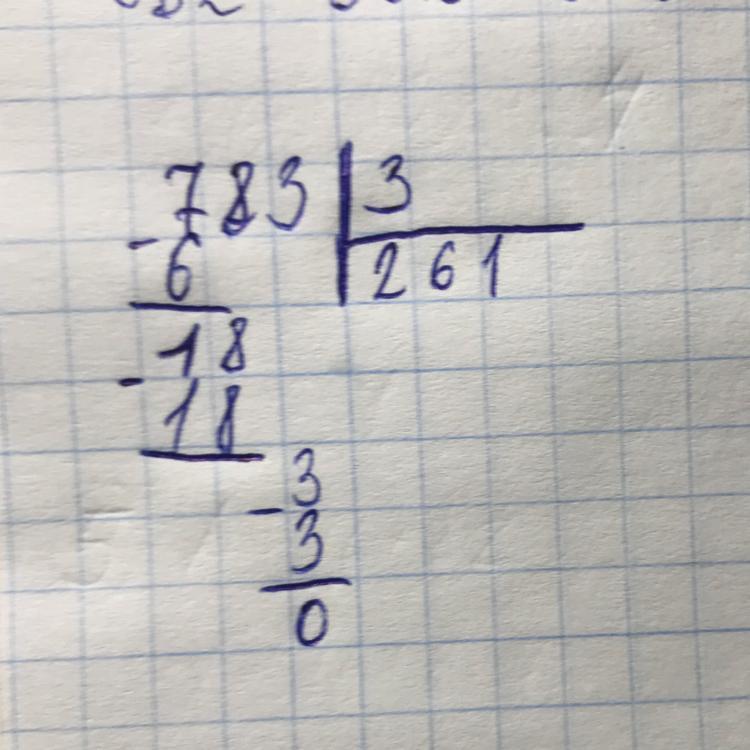 783 3
- 6 261
18
- 18
3
- 3
0